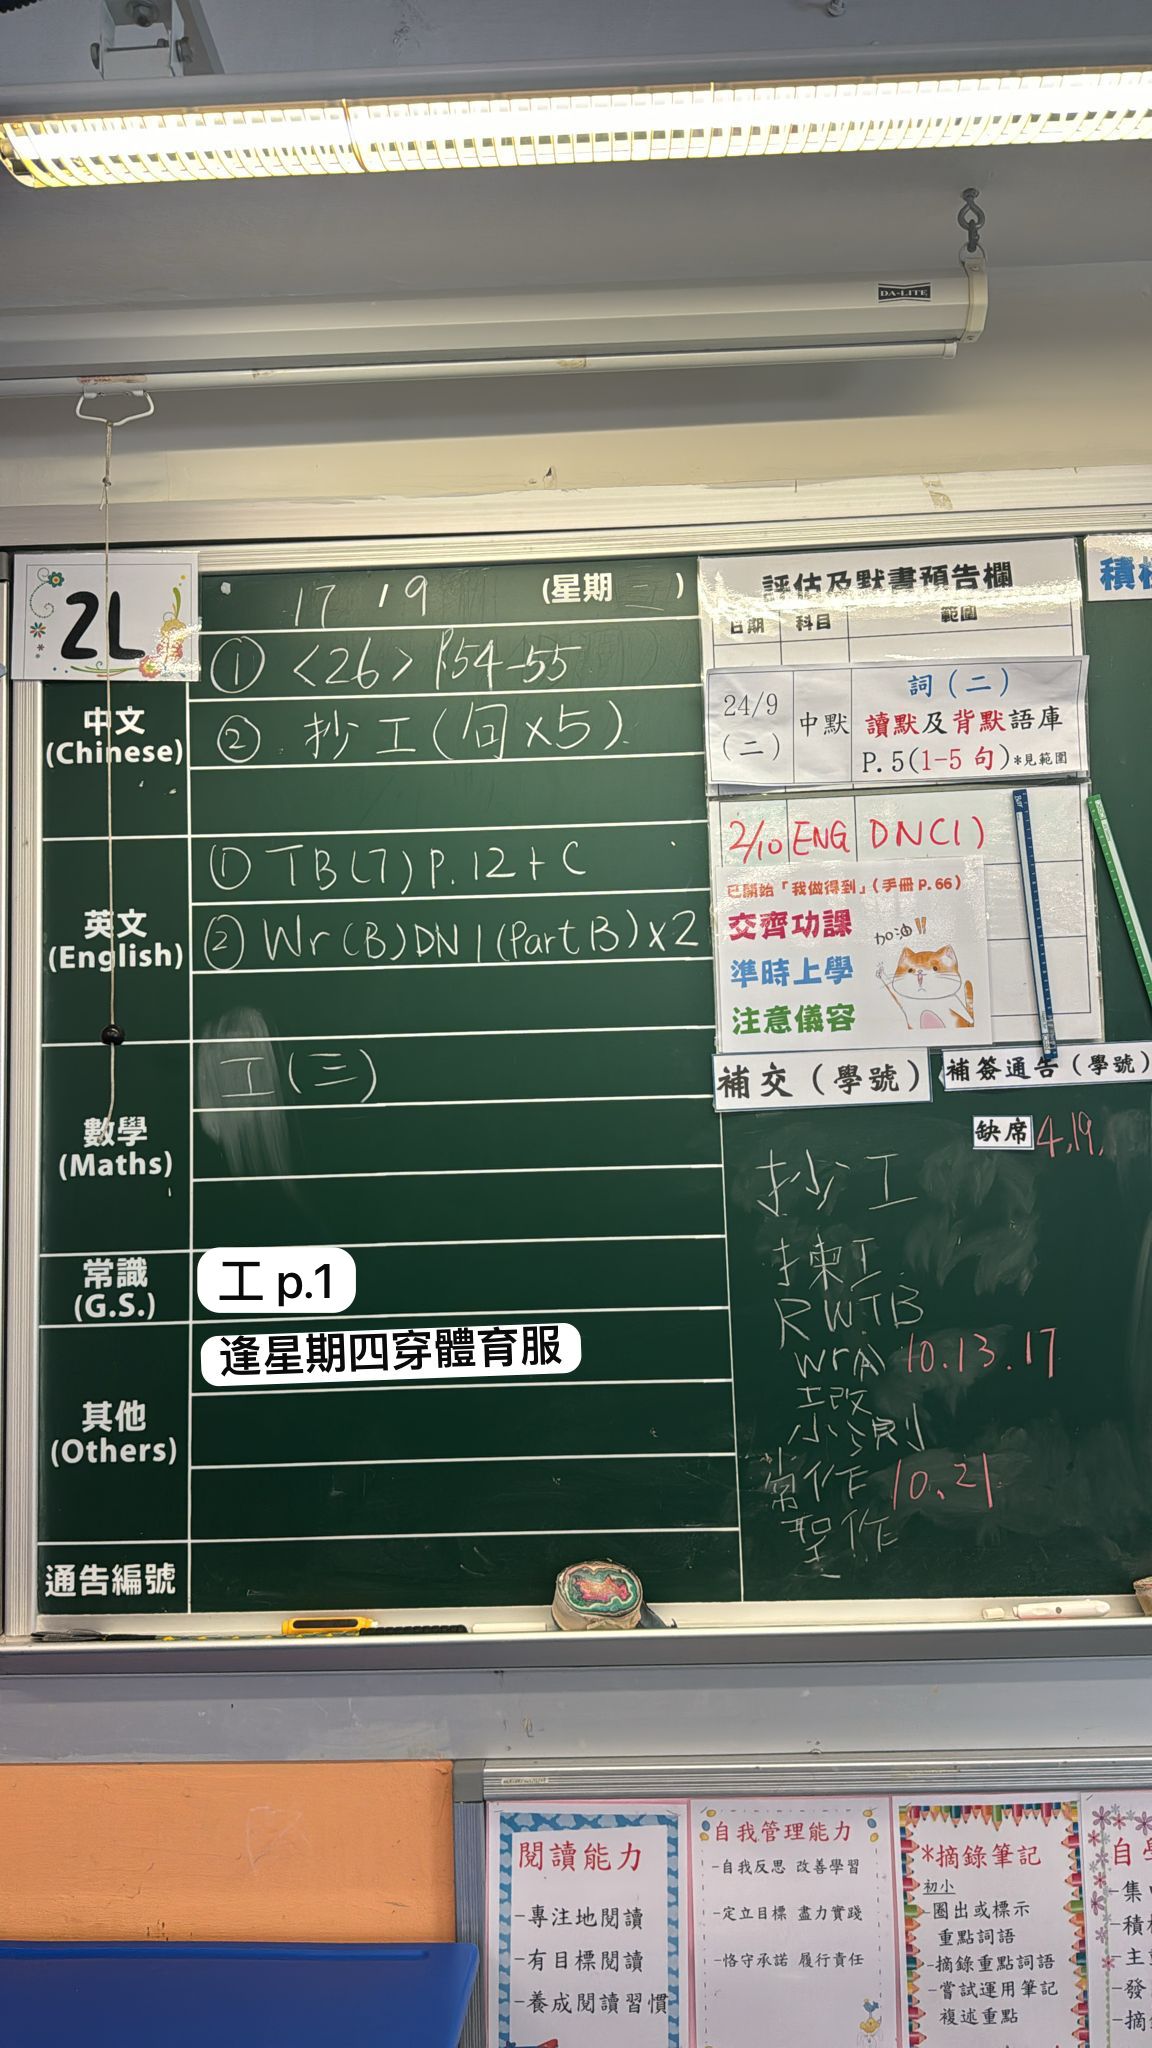 DA-LITE
2L
17 / 9 (星期二)
中文
(Chinese)
① <26> P.54-55
② 抄工(句x5)
英文
(English)
① TB(7) P.12+C
② Wr(B) DN1(Part B)x2
數學
(Maths)
工(三)
常識
(G.S.)
工 p.1
其他
(Others)
逢星期四穿體育服
通告編號
評估及默書預告欄
日期 科目 範圍
24/9
(二)
中默
詞(二)
讀默及背默語庫
P.5(1-5 句)*見範圍
2/10 ENG DN(1)
已開始「我做得到」(手冊 P.66)
交齊功課
準時上學
注意儀容
加油!!
補交(學號)
補簽通告(學號)
缺席 4,19,
抄工
揀工
RWTB
WrA 10.13.17
工改
小測
常作 10.21
聖作
閱讀能力
-專注地閱讀
-有目標閱讀
-養成閱讀習慣
自我管理能力
-自我反思 改善學習
-定立目標 盡力實踐
-恪守承諾 履行責任
*摘錄筆記
初小
-圈出或標示
重點詞語
-摘錄重點詞語
-嘗試運用筆記
複述重點